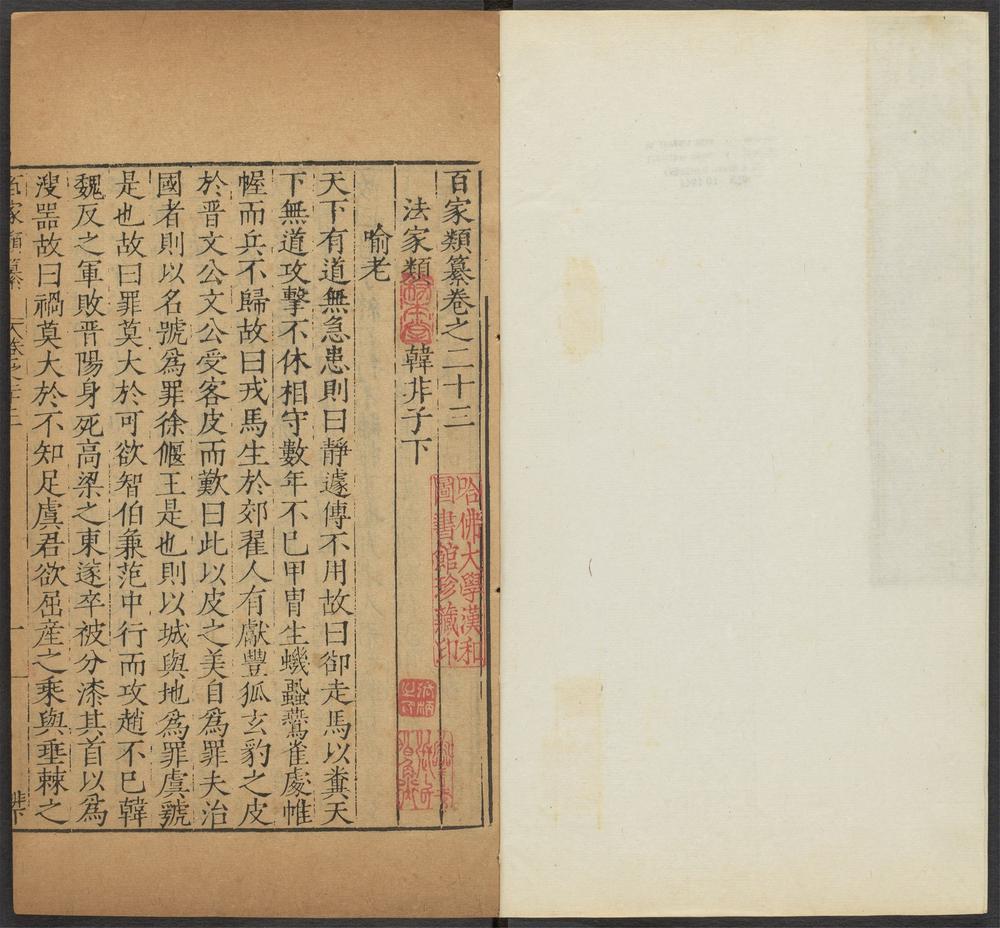 百家類纂卷之二十三
法家類 韓非子下
喻老
天下有道無急患則曰靜遽傳不用故曰卻走馬以糞天
下無道攻擊不休相守數年不已甲冑生蟣蝨鷰雀處帷
幄而兵不歸故曰戎馬生於郊翟人有獻豐狐玄豹之皮
於晉文公文公受客皮而歎曰此以皮之美自爲罪夫治
國者則以名號爲罪徐偃王是也則以城與地爲罪虞虢
是也故曰罪莫大於可欲智伯兼范中行而攻趙不已韓
魏反之軍敗晉陽身死高梁之東遂卒被分漆其首以爲
溲噐故曰禍莫大於不知足虞君欲屈産之乘與垂棘之
百家類纂 卷之二十三 一
哈佛大學漢和
圖書館珍藏印